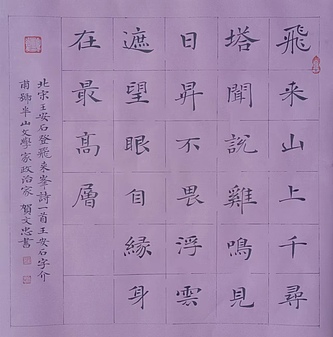 飛来山上千尋
塔聞說雞鳴見
日昇不畏浮雲
遮望眼自緣身
在最髙層
北宋王安石登飛来峯詩一首王安石字介
甫號半山文學家政治家 賀文忠書